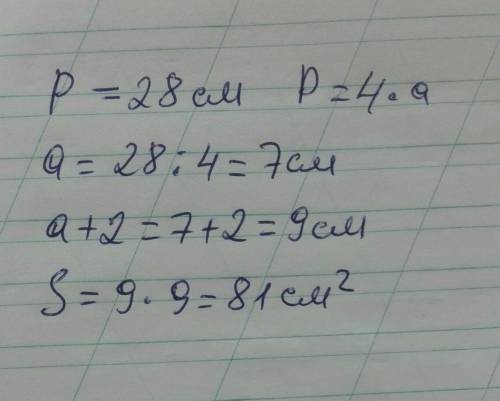 P = 28 см P = 4 · a
a = 28 : 4 = 7 см
a + 2 = 7 + 2 = 9 см
S = 9 · 9 = 81 см²